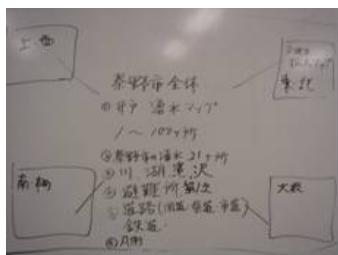 上・西
東・北
秦野市全体
①井戸 湧水マップ
1～107ヶ所
②秦野市の湧水21ヶ所
③川 湖 滝 沢
④避難所
⑤道路(国道 県道 市道)
鉄道
⑥凡例
南・鶴
大根